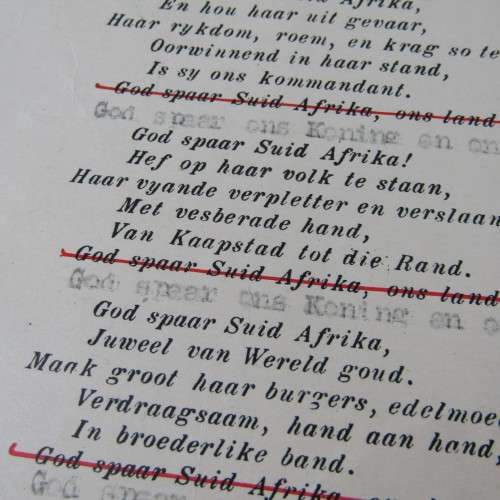 Suid Afrika,
En hou haar uit gevaar,
Haar rykdom, roem, en krag so te
Oorwinnend in haar stand,
Is sy ons kommandant.
God spaar Suid Afrika, ons land
God spaar ons Koning en on
God spaar Suid Afrika!
Hef op haar volk te staan,
Haar vyande verpletter en verslaan
Met vesberade hand,
Van Kaapstad tot die Rand.
God spaar Suid Afrika, ons land
God spaar ons Koning en o
God spaar Suid Afrika,
Juweel van Wereld goud.
Maak groot haar burgers, edelmoe
Verdraagsaam, hand aan hand,
In broederlike band.
God spaar Suid Afrika
God spaar